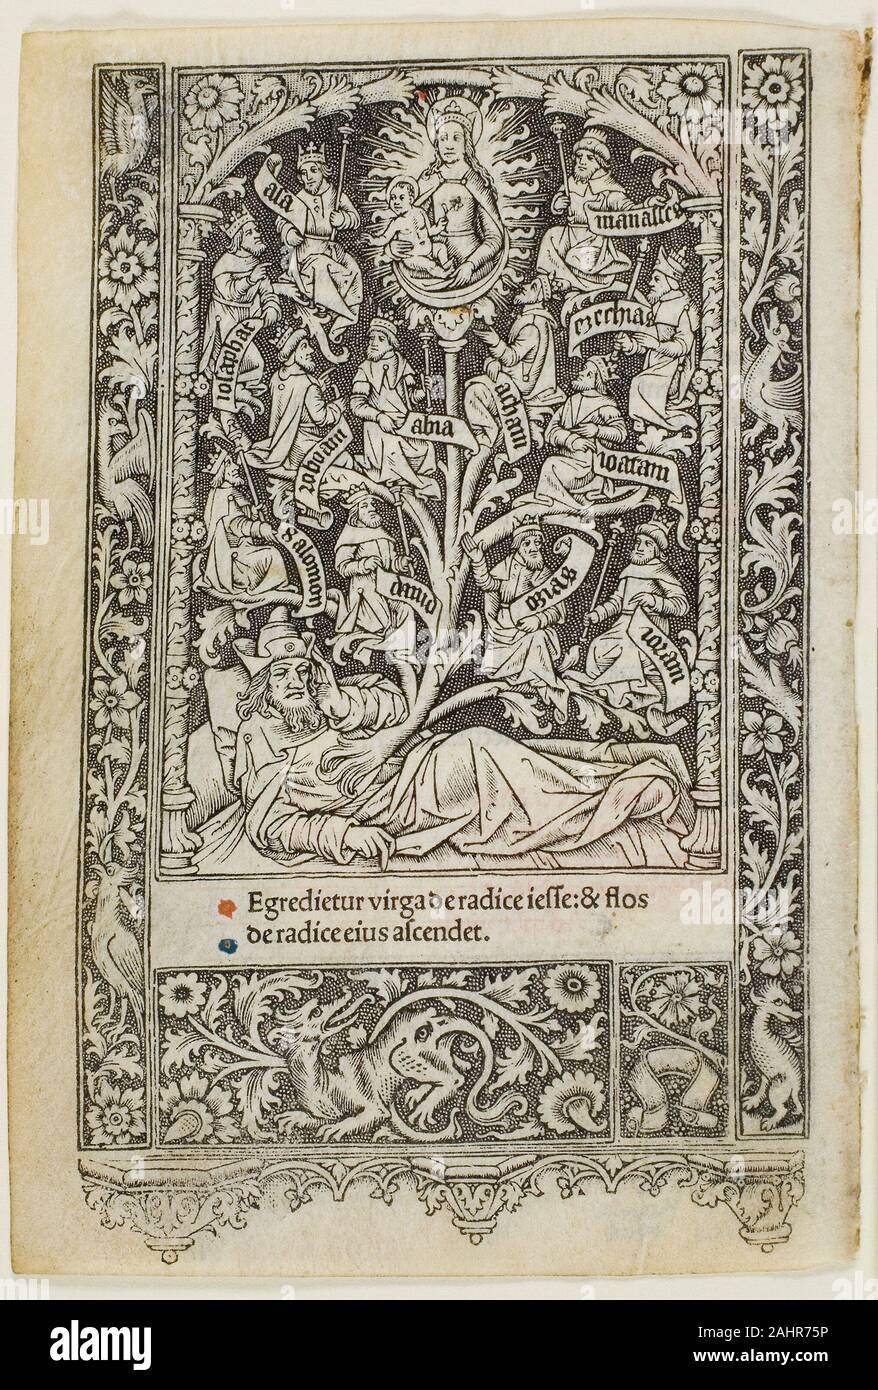 asa
manasses
ezechias
iosaphat
roboam
abia
acham
ioatam
salomon
dauid
osias
ioram
Egredietur virga de radice iesse: & flos
de radice eius ascendet.
a
alamy
Image ID: 2AHR75P
www.alamy.com